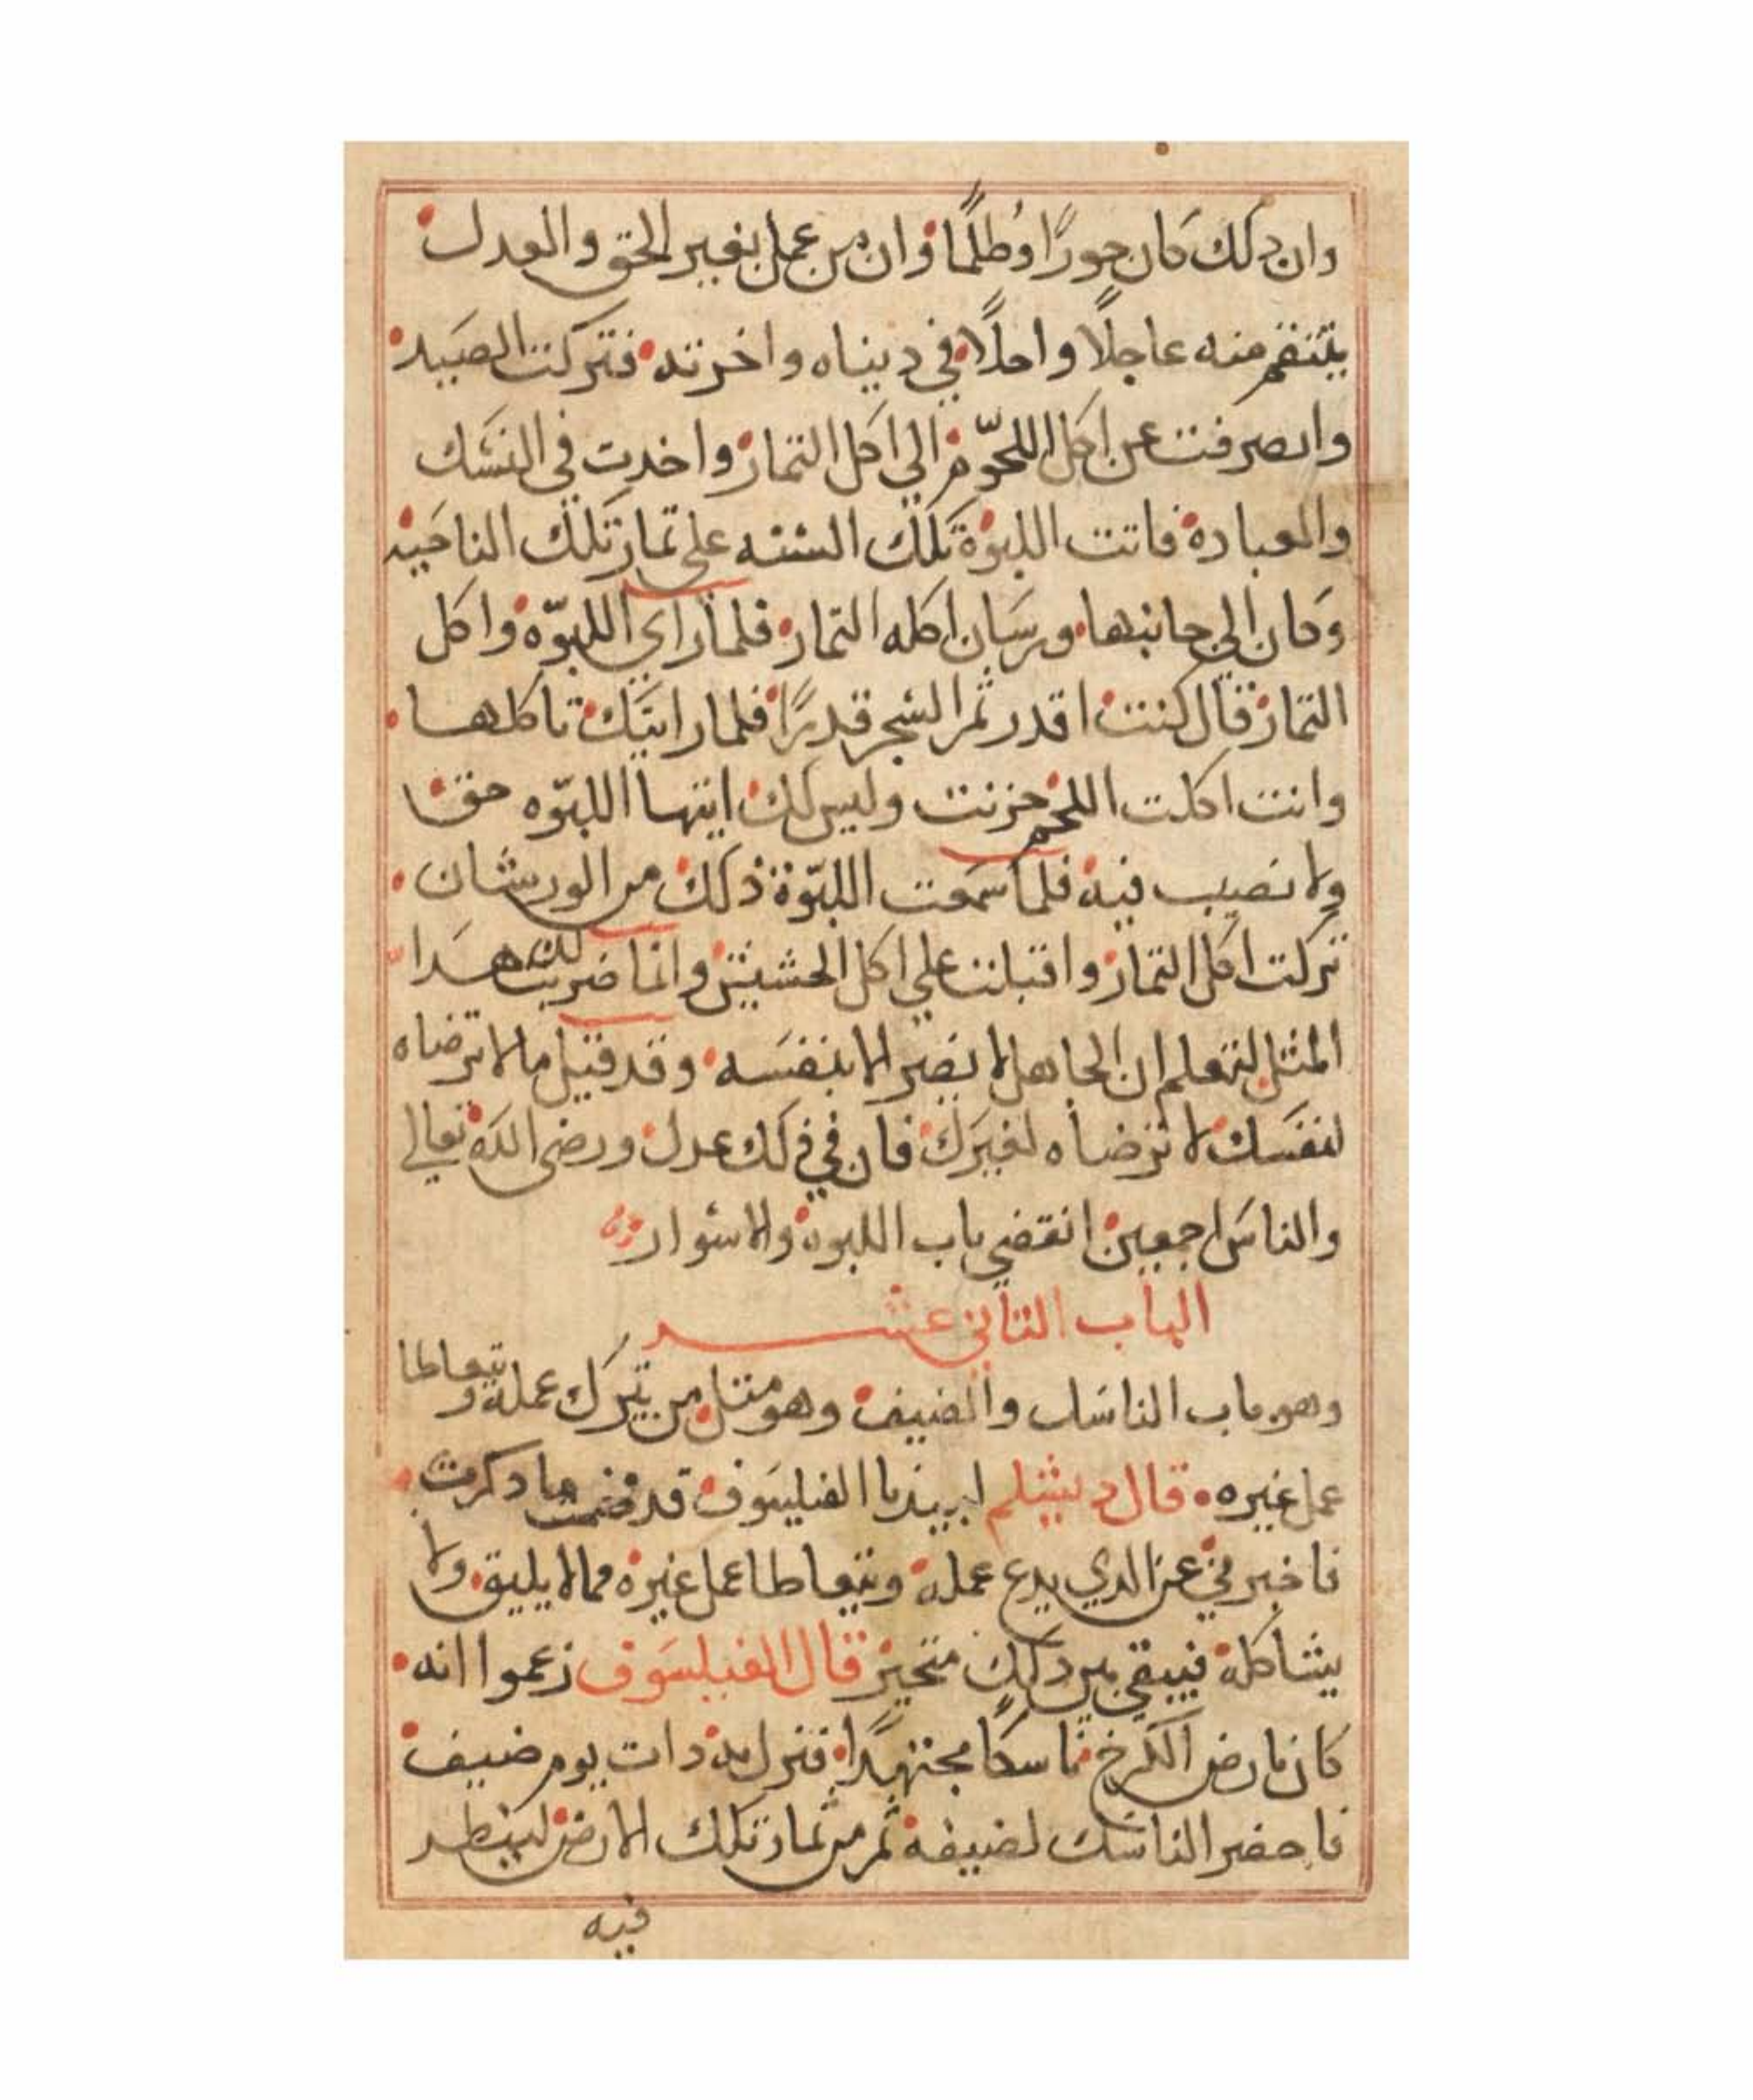 وان دلك كان جورًا وظلمًا وان من عمل بغير الحق والعدل
ينتقم منه عاجلًا واجلًا في ديناه واخرته فتركت الصيد
وانصرفت عن اكل اللحوم الي اكل التمار واخدت في النسك
والعبادة فاتت اللبوة تلك السنه على تمار تلك الناحيه
وكان الي جانبها ورسان اكله التمار فلما راي اللبوّة واكل
التمار قال كنت اقدر ثمر الشجر قدرًا فلما رايتك تاكلها
وانت اكلت اللحم حزنت وليس لك ايتها اللبوّه حق
ولا نصيب فيه فلما سمعت اللبوّة ذلك من الورشان
تركت اكل التمار واقبلت علي اكل الحشيش وانما ضربت لك هدا
المثل لتعلم ان الجاهل لا يضر الا بنفسه وقد قيل ما لا ترضاه
لنفسك لا ترضاه لغيرك فان في ذلك عدل ورضى الله تعالي
والناس اجمعين انقضي باب اللبوة والاسوار
الباب التاني عشر
وهو باب الناسك والضيف وهو مثل من ترك عمله وتعاطا
عمل غيره قال دبشلم لبيدبا الفيلسوف قد فهمت ما دكرت
فاخبرني عن الدي يدع عمله ويتعاطا عمل غيره مما لا يليق ولا
يشاكله فيبقي بين دلك متحيز قال الفيلسوف زعموا انه
كان بارض الكرخ ناسكا مجتهدًا فنزل به دات يوم ضيف
فاحضر الناسك لضيفه ثمر من ثمار تلك الارض لينظر
فيه